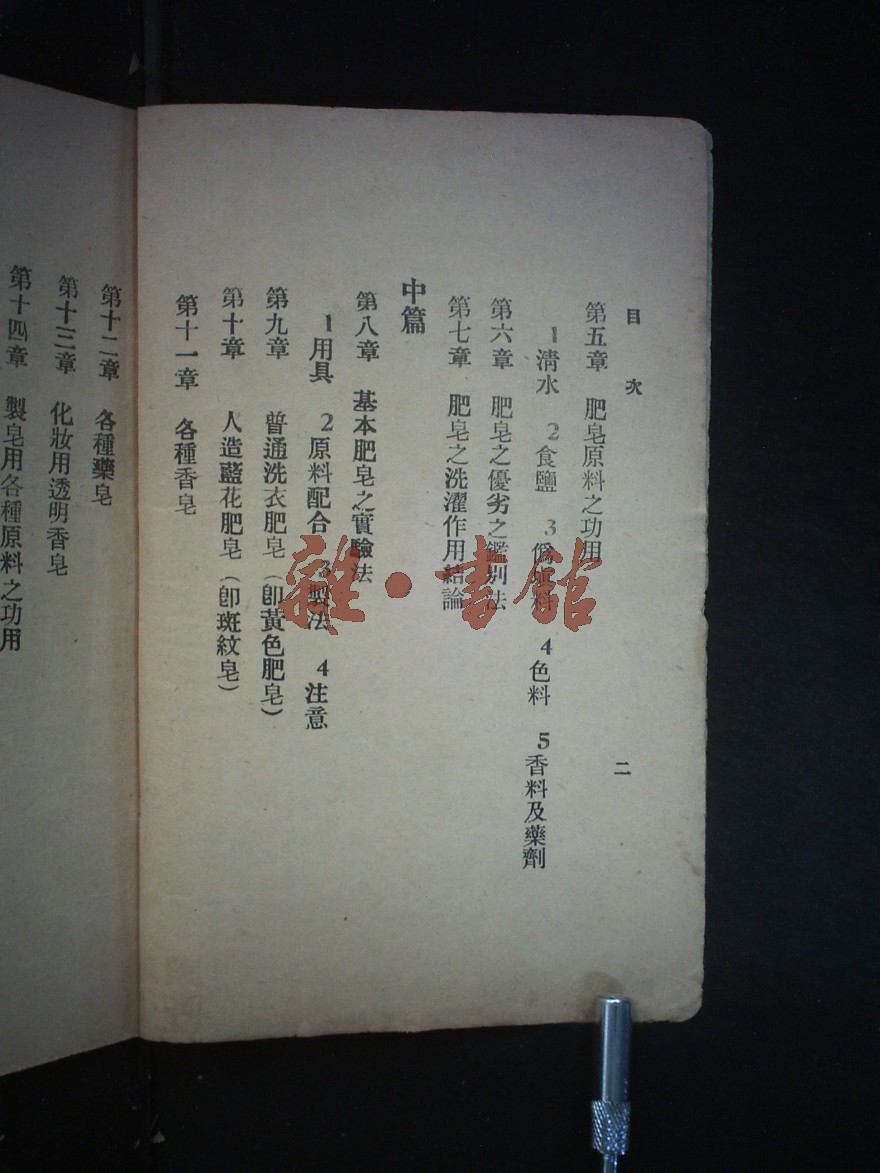 目次
二
第五章 肥皂原料之功用
1清水 2食鹽 3僞原料 4色料 5香料及藥劑
第六章 肥皂之優劣之鑑別法
第七章 肥皂之洗濯作用結論
中篇
第八章 基本肥皂之實驗法
1用具 2原料配合 3製法 4注意
第九章 普通洗衣肥皂（卽黃色肥皂）
第十章 人造藍花肥皂（卽斑紋皂）
第十一章 各種香皂
第十二章 各種藥皂
第十三章 化妝用透明香皂
第十四章 製皂用各種原料之功用
雜·書館